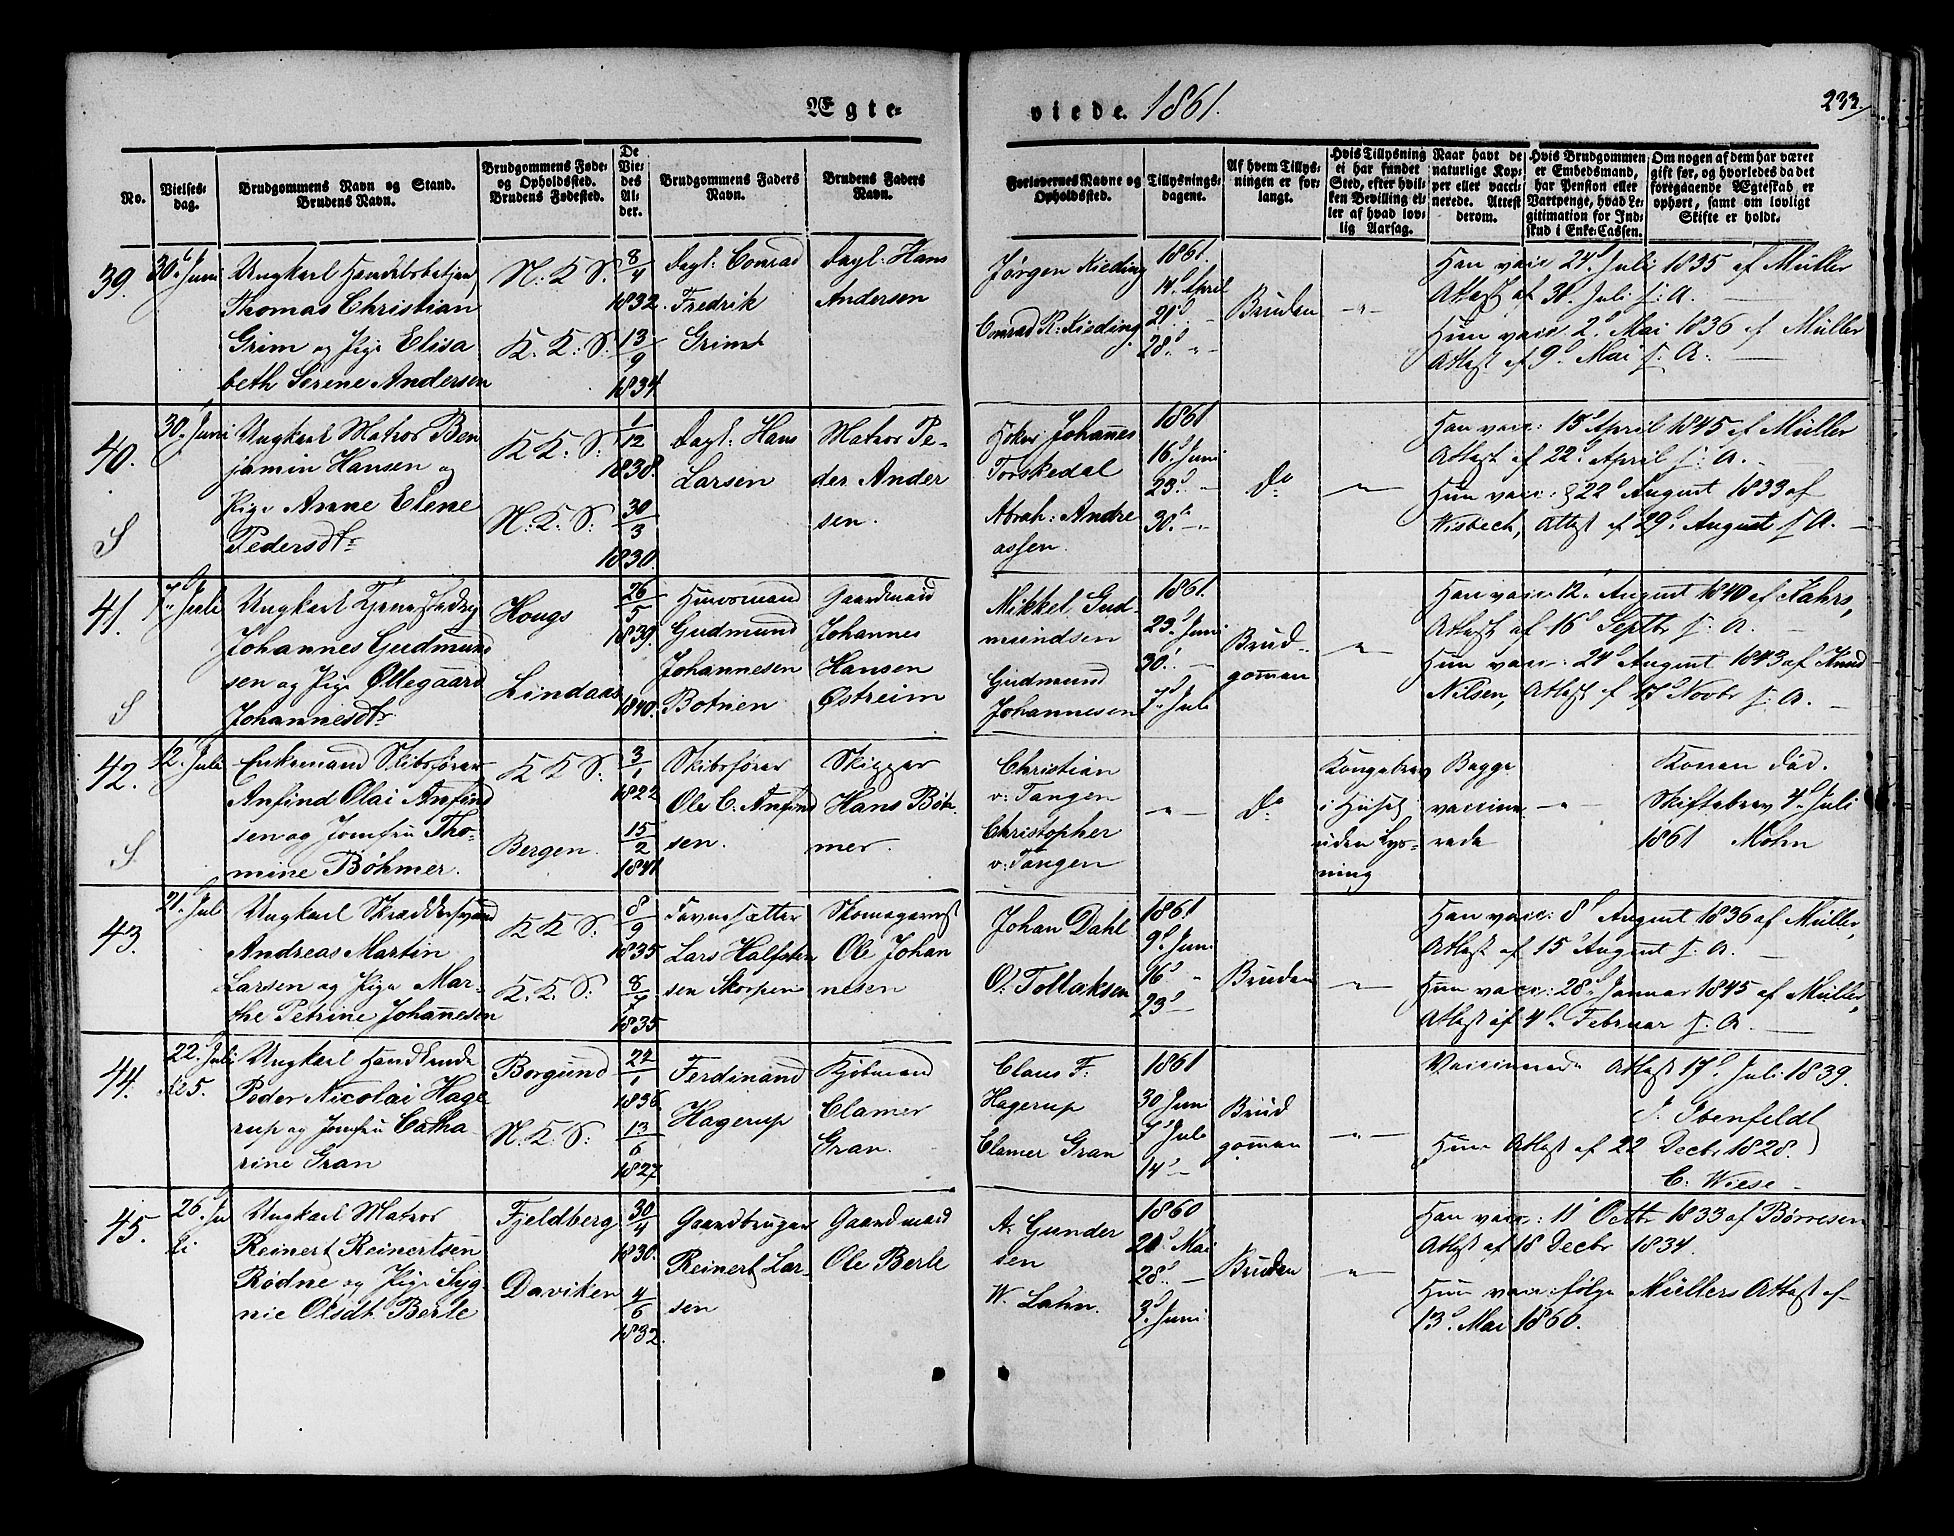 Ægte-
viede. 1861.
233
No.
Vielses-
dag.
Brudgommens Navn og Stand.
Brudens Navn.
Brudgommens Føde-
og Opholdssted.
Brudens Fødested.
De
Vie-
des
Al-
der.
Brudgommens Faders
Navn.
Brudens Faders
Navn.
Forlovernes Navne og
Opholdssted.
Tillysnings-
dagene.
Af hvem Tillys-
ningen er for-
langt.
Hvis Tillysning
ei har fundet
Sted, efter hvil-
ken Bevilling el-
ler af hvad lov-
lig Aarsag.
Naar havt de
naturlige Kop-
per eller vacci-
nerede. Attest
derom.
Hvis Brudgommen
er Embedsmand,
har Pension eller
Vartpenge, hvad Le-
gitimation for Ind-
skud i Enke-Cassen.
Om nogen af dem har været
gift før, og hvorledes da det
foregaaende Ægteskab er
ophørt, samt om lovligt
Skifte er holdt.
39.
30. Juni
Ungkarl
Thomas Christian
Grim og Pige Elisa
beth Serene Andersen
N. K. S.
K. K. S.
8/4
1832.
13/9
1834
Dagl: Conrad
Fredrik
Grim
Dagl: Hans
Andersen
Jørgen Kieding
Conrad R. Kieding
1861.
14. April
21. -
28. -
Bruden
Han vacc. 24. Juli 1835 af Müller
Attest af 31. Juli s. A.
Hun vacc. 2. Mai 1836 af Müller
Attest af 9. Mai s. A.
40.
S
30. Juni
Ungkarl Matros Ben
jamin Hansen og
Pige Anne Elene
Pedersdtr
K K. S.
N. K. S.
1/12
1838.
30/3
1830.
Dagl: Hans
Larsen
Matros Pe-
der Ander
sen.
Johannes
Torskedal
Abrah: Andre
assen.
1861
16. Juni
23. -
30. -
Do
Han vacc: 15 April 1845 af Müller
Attest af 22. April s. A.
Hun vacc: 22 August 1833 af
Wisbech, Attest af 29. August s. A.
41.
S
7. Juli
Ungkarl
Johannes Gudmund
sen og Pige Øllegaard
Johannesdtr
Hougs
Lindaas
26/5
1839.
1840.
Huusmand
Gudmund
Johannesen
Botnen
Gaardmand
Johannes
Hansen
Østreim
Mikkel Gud-
mundsen
Gudmund
Johannesen
1861.
23. Juni
30. -
7. Juli
Brud-
gomman
Han vacc. 12. August 1840 af Kahrs,
Attest af 16 Septbr s. A.
Hun vacc: 24 August 1843 af Knud
Nilsen, Attest af 17 Novbr s. A.
42.
S.
12. Juli
Enkemand Skibsfører
Anfind Olai Anfind
sen og Jomfru Tho-
mine Bøhmer.
K K S.
Bergen.
3/1
1822
15/2
1841
Skibsfører
Ole C. Anfind
sen.
Skipper
Hans Bøh-
mer.
Christian
v: Tangen
Christopher
v: Tangen
Do
Kongebrev
i Huset
uden Lys-
ning
Begge
vaccine-
rede
Konen død.
Skiftebrev 4. Juli
1861 Mohn
43.
21. Juli
Ungkarl Skræddersvend
Andreas Martin
Larsen og Pige Mar-
the Petrine Johannesen
K K S.
K. K. S.
8/9
1835
8/7
1835
Tavnesætter
Lars Halfsten
sen Skorpen
Skomagermst
Ole Johan
nesen
Johan Dahl
O. Tollaksen
1861
9. Juni
16. -
23. -
Bruden
Han vacc: 8. August 1836 af Müller,
Attest af 15 August s. A.
Hun vacc: 28. Januar 1845 af Müller,
Attest af 4. Februar s. A.
44.
22. Juli
Ungkarl Handlende
Peder Nicolai Hage
rup og Jomfru Catha-
rine Gran
Borgund
N. K. S.
1836.
13/6
1827
Ferdinand
Hagerup
Kjøbmand
Clamer
Gran.
Claus F.
Hagerup
Clamer Gran
1861
30 Juni
7 Juli
14 -
Brud
gomman
Vaccinerede Attest 17. Juli 1839.
J. Ibenfeldt
Hun Attest af 22 Decbr 1828.
C. Wiese
45.
26. Ju
li
Ungkarl Matros
Reinert Reinertsen
Rødne og Pige Syg
nie Olsdt. Berle
Fjeldberg
Daviken
30/4
1830.
4/6
1832.
Gaardbruger
Reinert Lar-
sen
Gaardmand
Ole Berle
A. Gunder
sen
W. Lahn.
1860
20. Mai
28. -
3. Juni
Bruden
Han vacc: 11 Octbr 1833 af Børresen
Attest af 18 Decbr 1834.
Hun vacc: ifølge Müllers Attest af
13. Mai 1860.